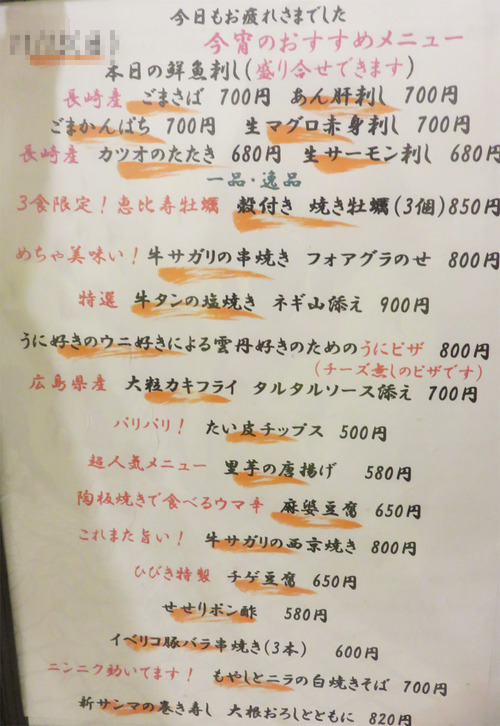 今日もお疲れさまでした
今宵のおすすめメニュー
本日の鮮魚刺し(盛り合せできます)
長崎産 ごまさば 700円 あん肝刺し 700円
ごまかんぱち 700円 生マグロ赤身刺し 700円
長崎産 カツオのたたき 680円 生サーモン刺し 680円
一品・逸品
3食限定!恵比寿牡蠣 殻付き 焼き牡蠣(3個)850円
めちゃ美味い!牛サガリの串焼き フォアグラのせ 800円
特選 牛タンの塩焼き ネギ山添え 900円
うに好きのウニ好きによる雲丹好きのためのうにピザ 800円
(チーズ無しのピザです)
広島県産 大粒カキフライ タルタルソース添え 700円
パリパリ! たい皮チップス 500円
超人気メニュー 里芋の唐揚げ 580円
陶板焼きで食べるウマ辛 麻婆豆腐 650円
これまた旨い! 牛サガリの西京焼き 800円
ひびき特製 チゲ豆腐 650円
せせりポン酢 580円
イベリコ豚バラ串焼き(3本) 600円
ニンニク効いてます! もやしとニラの白焼きそば 700円
新サンマの巻き寿し 大根おろしとともに 820円